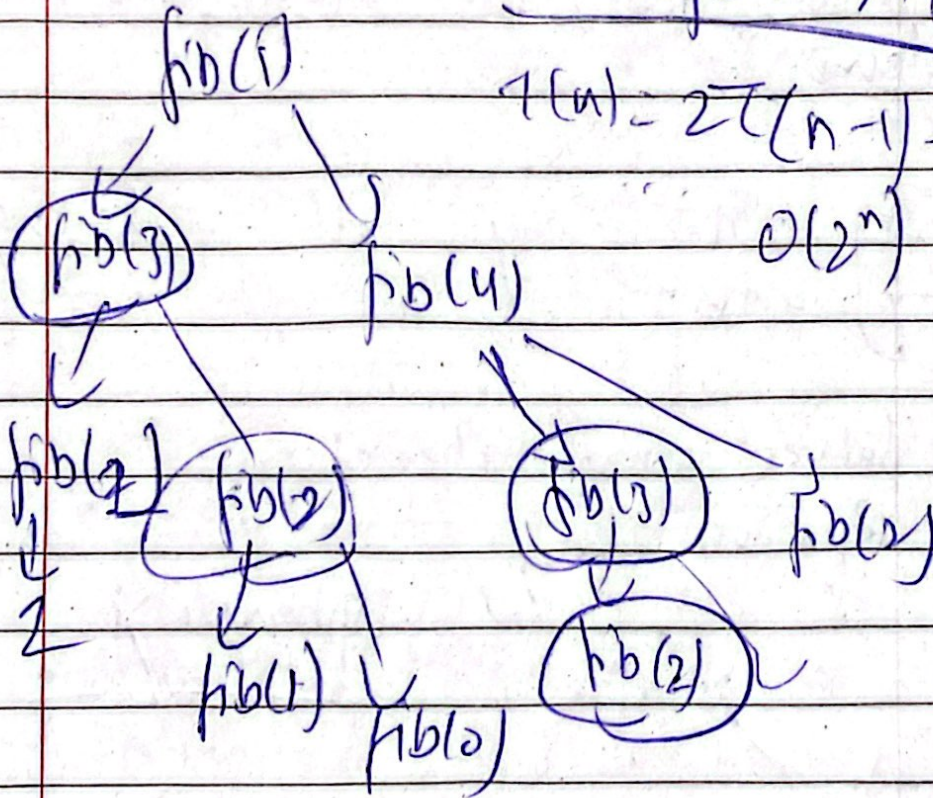 fib(5)
T(n) = 2T(n-1)
O(2^n)
fib(3)
fib(4)
fib(2)
fib(3)
fib(2)
fib(1)
fib(0)
fib(2)